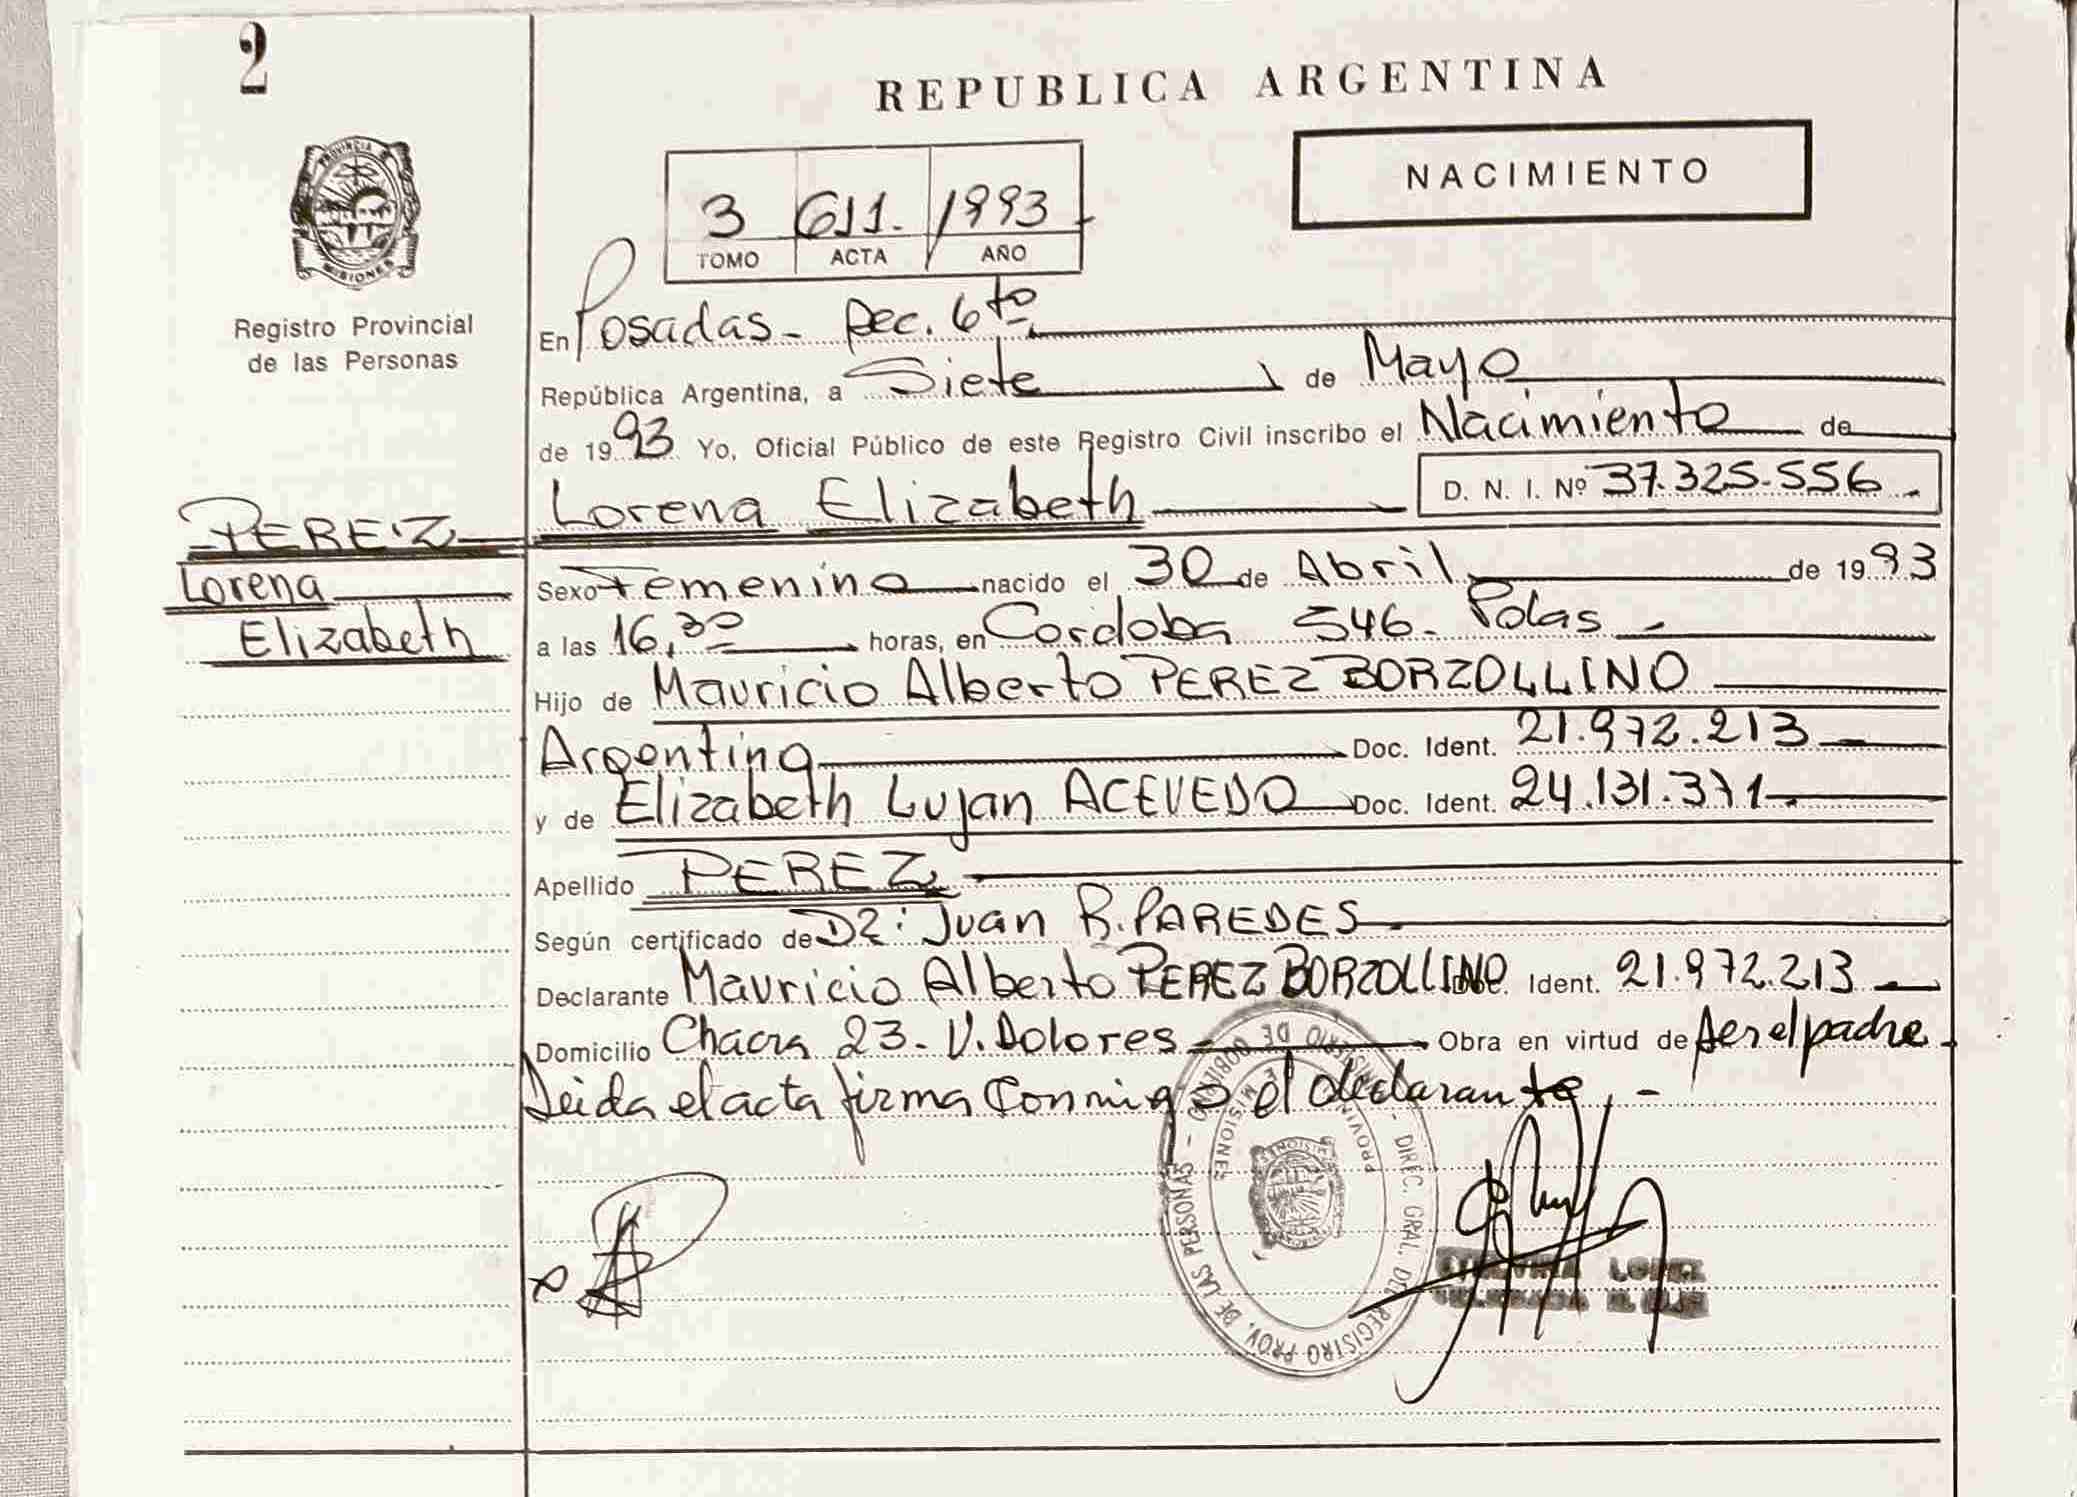 2
REPUBLICA ARGENTINA
NACIMIENTO
3 611. 1993
TOMO ACTA AÑO
PROVINCIA DE
MISIONES
Registro Provincial
de las Personas
En Posadas - Sec. 6to
República Argentina, a Siete de Mayo
de 1993 Yo, Oficial Público de este Registro Civil inscribo el Nacimiento de
Lorena Elizabeth D. N. I. Nº 37.325.556
PEREZ
Lorena
Elizabeth
Sexo Femenino nacido el 30 de Abril de 1993
a las 16,30 horas, en Cordoba 546 - Pdas
Hijo de Mauricio Alberto PEREZ BORZOLLINO
Argentina Doc. Ident. 21.972.213
y de Elizabeth Lujan ACEVEDO Doc. Ident. 24.131.371
Apellido PEREZ
Según certificado de Dr: Juan R. PAREDES
Declarante Mauricio Alberto PEREZ BORZOLLINO Ident. 21.972.213
Domicilio Chacra 23 - V. Dolores Obra en virtud de ser el padre
Leida el acta firma conmigo el declarante, -
MINISTERIO DE GOBIERNO - DIREC. GRAL. DEL REGISTRO PROV. DE LAS PERSONAS -
PROVINCIA DE MISIONES
LOPEZ